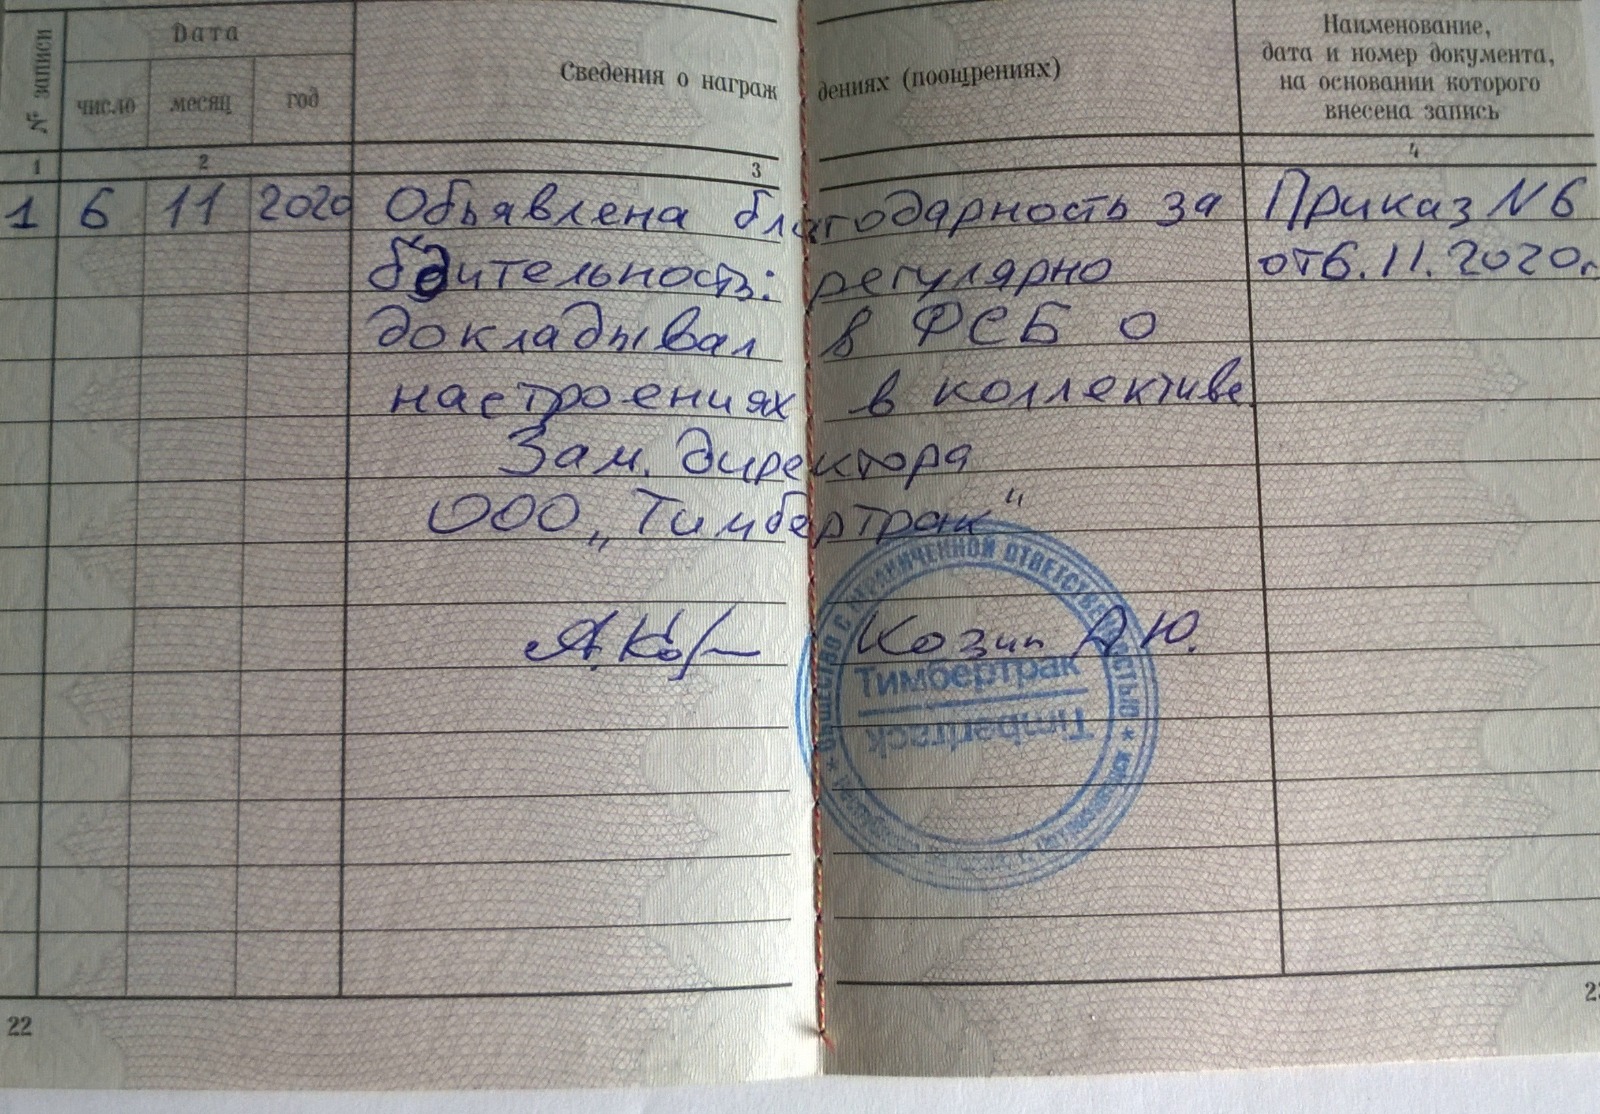 № записи
Дата
число месяц год
Сведения о награждениях (поощрениях)
Наименование,
дата и номер документа,
на основании которого
внесена запись
1 2 3 4
1 6 11 2020 Обьявлена благодарность за Приказ N 6
бдительность: регулярно от 6.11.2020г
докладывал в ФСБ о
настроениях в коллективе
Зам. директора
ООО „Тимбертрак"
Козип А Ю.
ОБЩЕСТВО С ОГРАНИЧЕННОЙ ОТВЕТСТВЕННОСТЬЮ
Тимбертрак
Timbertrack
22